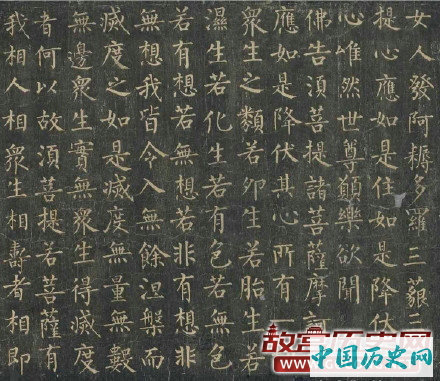 女人發阿耨多羅三藐三
提心應如是住如是降伏
心唯然世尊願樂欲聞
佛告須菩提諸菩薩摩訶
應如是降伏其心所有一
衆生之類若夘生若胎生若
濕生若化生若有色若無色
若有想若無想若非有想非
無想我皆令入無餘涅槃而
滅度之如是滅度無量無數
無邊衆生實無衆生得滅度
者何以故須菩提若菩薩有
我相人相衆生相壽者相即
故宫历史网
中国历史网